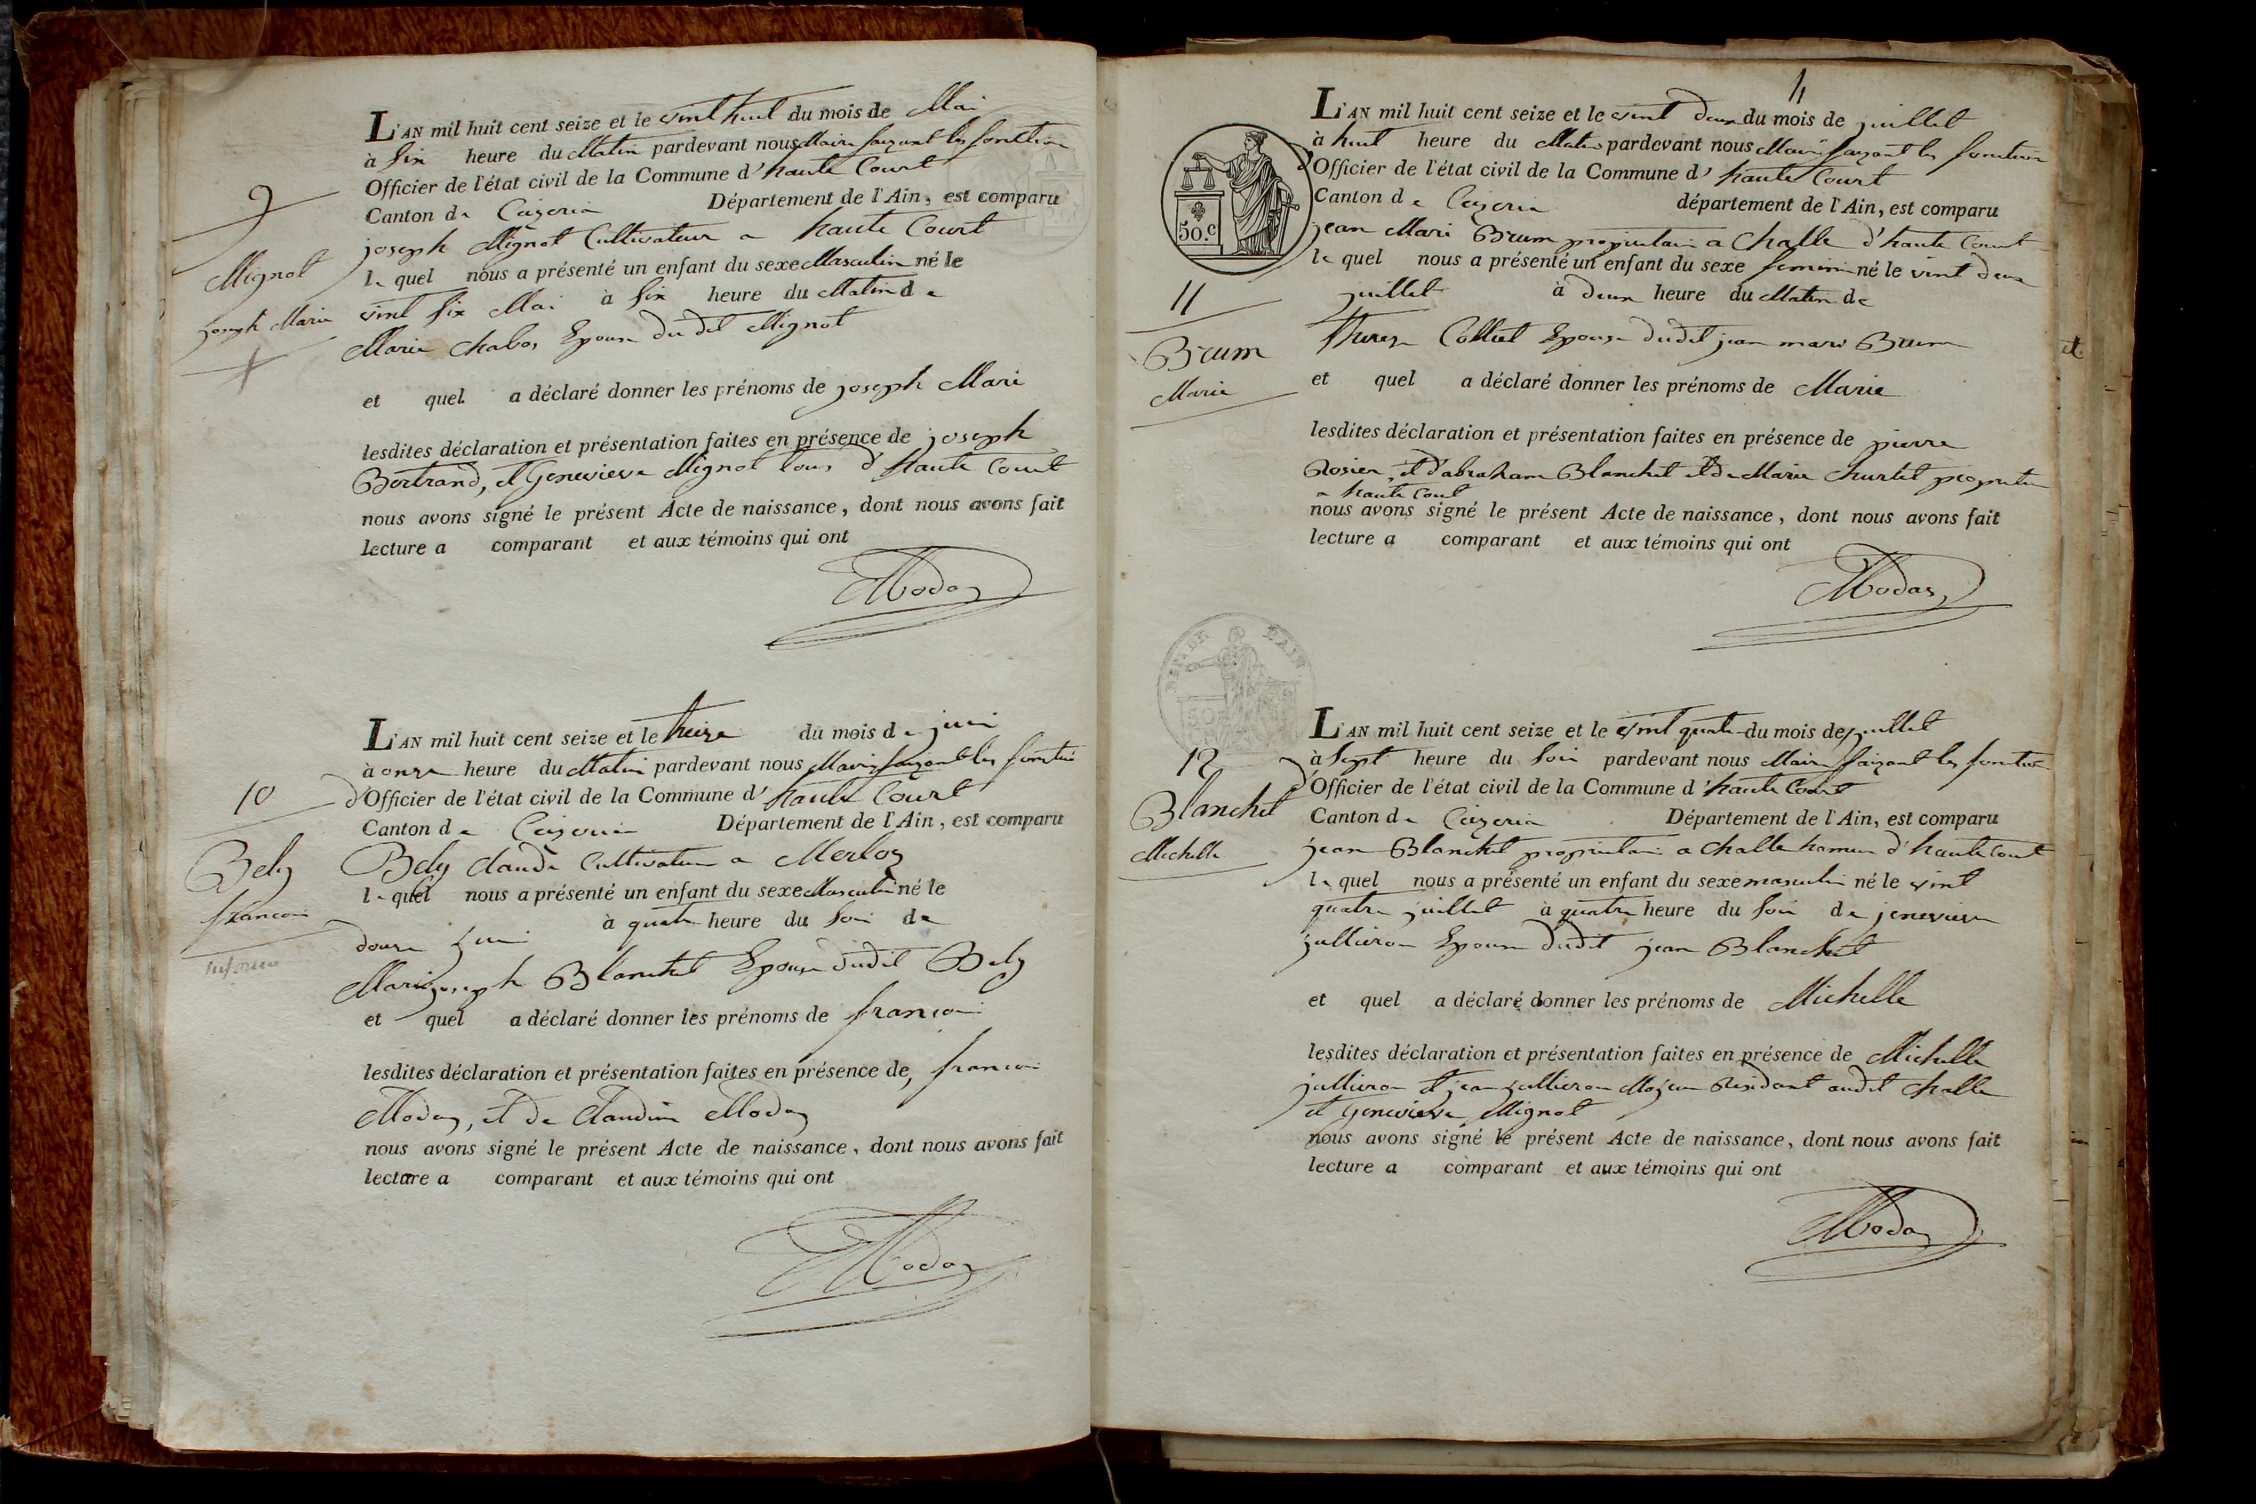 9
Mignot
joseph Marie
L'AN mil huit cent seize et le vint huit du mois de Mai
à Six heure du Matin pardevant nous Maire faizant les fonction
Officier de l'état civil de la Commune d'haute Court
Canton de Ceizeria Département de l'Ain, est comparu
joseph Mignot Cultivateur a haute Court
le quel nous a présenté un enfant du sexe Masculin né le
vint Six Mai à Six heure du Matin de
Marie chabos Epouse du dit Mignot
et quel a déclaré donner les prénoms de joseph Mari
lesdites déclaration et présentation faites en présence de joseph
Bertrand, et Genevieve Mignot tous d'haute Court
nous avons signé le présent Acte de naissance, dont nous avons fait
lecture a comparant et aux témoins qui ont
Moday
10
Bely
françoi
L'AN mil huit cent seize et le treize du mois de juin
à onze heure du Matin pardevant nous Maire faizant les fonction
d'Officier de l'état civil de la Commune d'haute Court
Canton de Ceizeria Département de l'Ain, est comparu
Bely claude Cultivateur a Merloz
le quel nous a présenté un enfant du sexe Masculin né le
douze juin à quatre heure du Soir de
Marie joseph Blanchet Epouse dudit Bely
et quel a déclaré donner les prénoms de françoi
lesdites déclaration et présentation faites en présence de, françoi
Moday, et de Claudine Moday
nous avons signé le présent Acte de naissance, dont nous avons fait
lecture a comparant et aux témoins qui ont
Moday
4
50.c
11
Brum
Marie
L'AN mil huit cent seize et le vint deux du mois de juillet
à huit heure du Matin pardevant nous Maire faizant les fonction
d'Officier de l'état civil de la Commune d'haute Court
Canton de Ceizeria département de l'Ain, est comparu
jean Mari Brum propriétaire a Challe d'haute Court
le quel nous a présenté un enfant du sexe feminin né le vint deux
juillet à deux heure du Matin de
Therese Colliet Epouse dudit jean mari Brum
et quel a déclaré donner les prénoms de Marie
lesdites déclaration et présentation faites en présence de pierre
Rosier, et d'abraham Blanchet et de Marie Churlet
a haute Court
nous avons signé le présent Acte de naissance, dont nous avons fait
lecture a comparant et aux témoins qui ont
Moday
12
Blanchet
Michelle
L'AN mil huit cent seize et le vint quatre du mois de juillet
à Sept heure du Soir pardevant nous Maire faizant les fonction
d'Officier de l'état civil de la Commune d'haute Court
Canton de Ceizeria Département de l'Ain, est comparu
jean Blanchet propriétaire a challe hameau d'haute Court
le quel nous a présenté un enfant du sexe masculin né le vint
quatre juillet à quatre heure du Soir de jenevieve
jullieron Epouse dudit jean Blanchet
et quel a déclaré donner les prénoms de Michelle
lesdites déclaration et présentation faites en présence de Michelle
jullieron et jean jullieron residant audit challe
et Genevieve Mignot
nous avons signé le présent Acte de naissance, dont nous avons fait
lecture a comparant et aux témoins qui ont
Moday